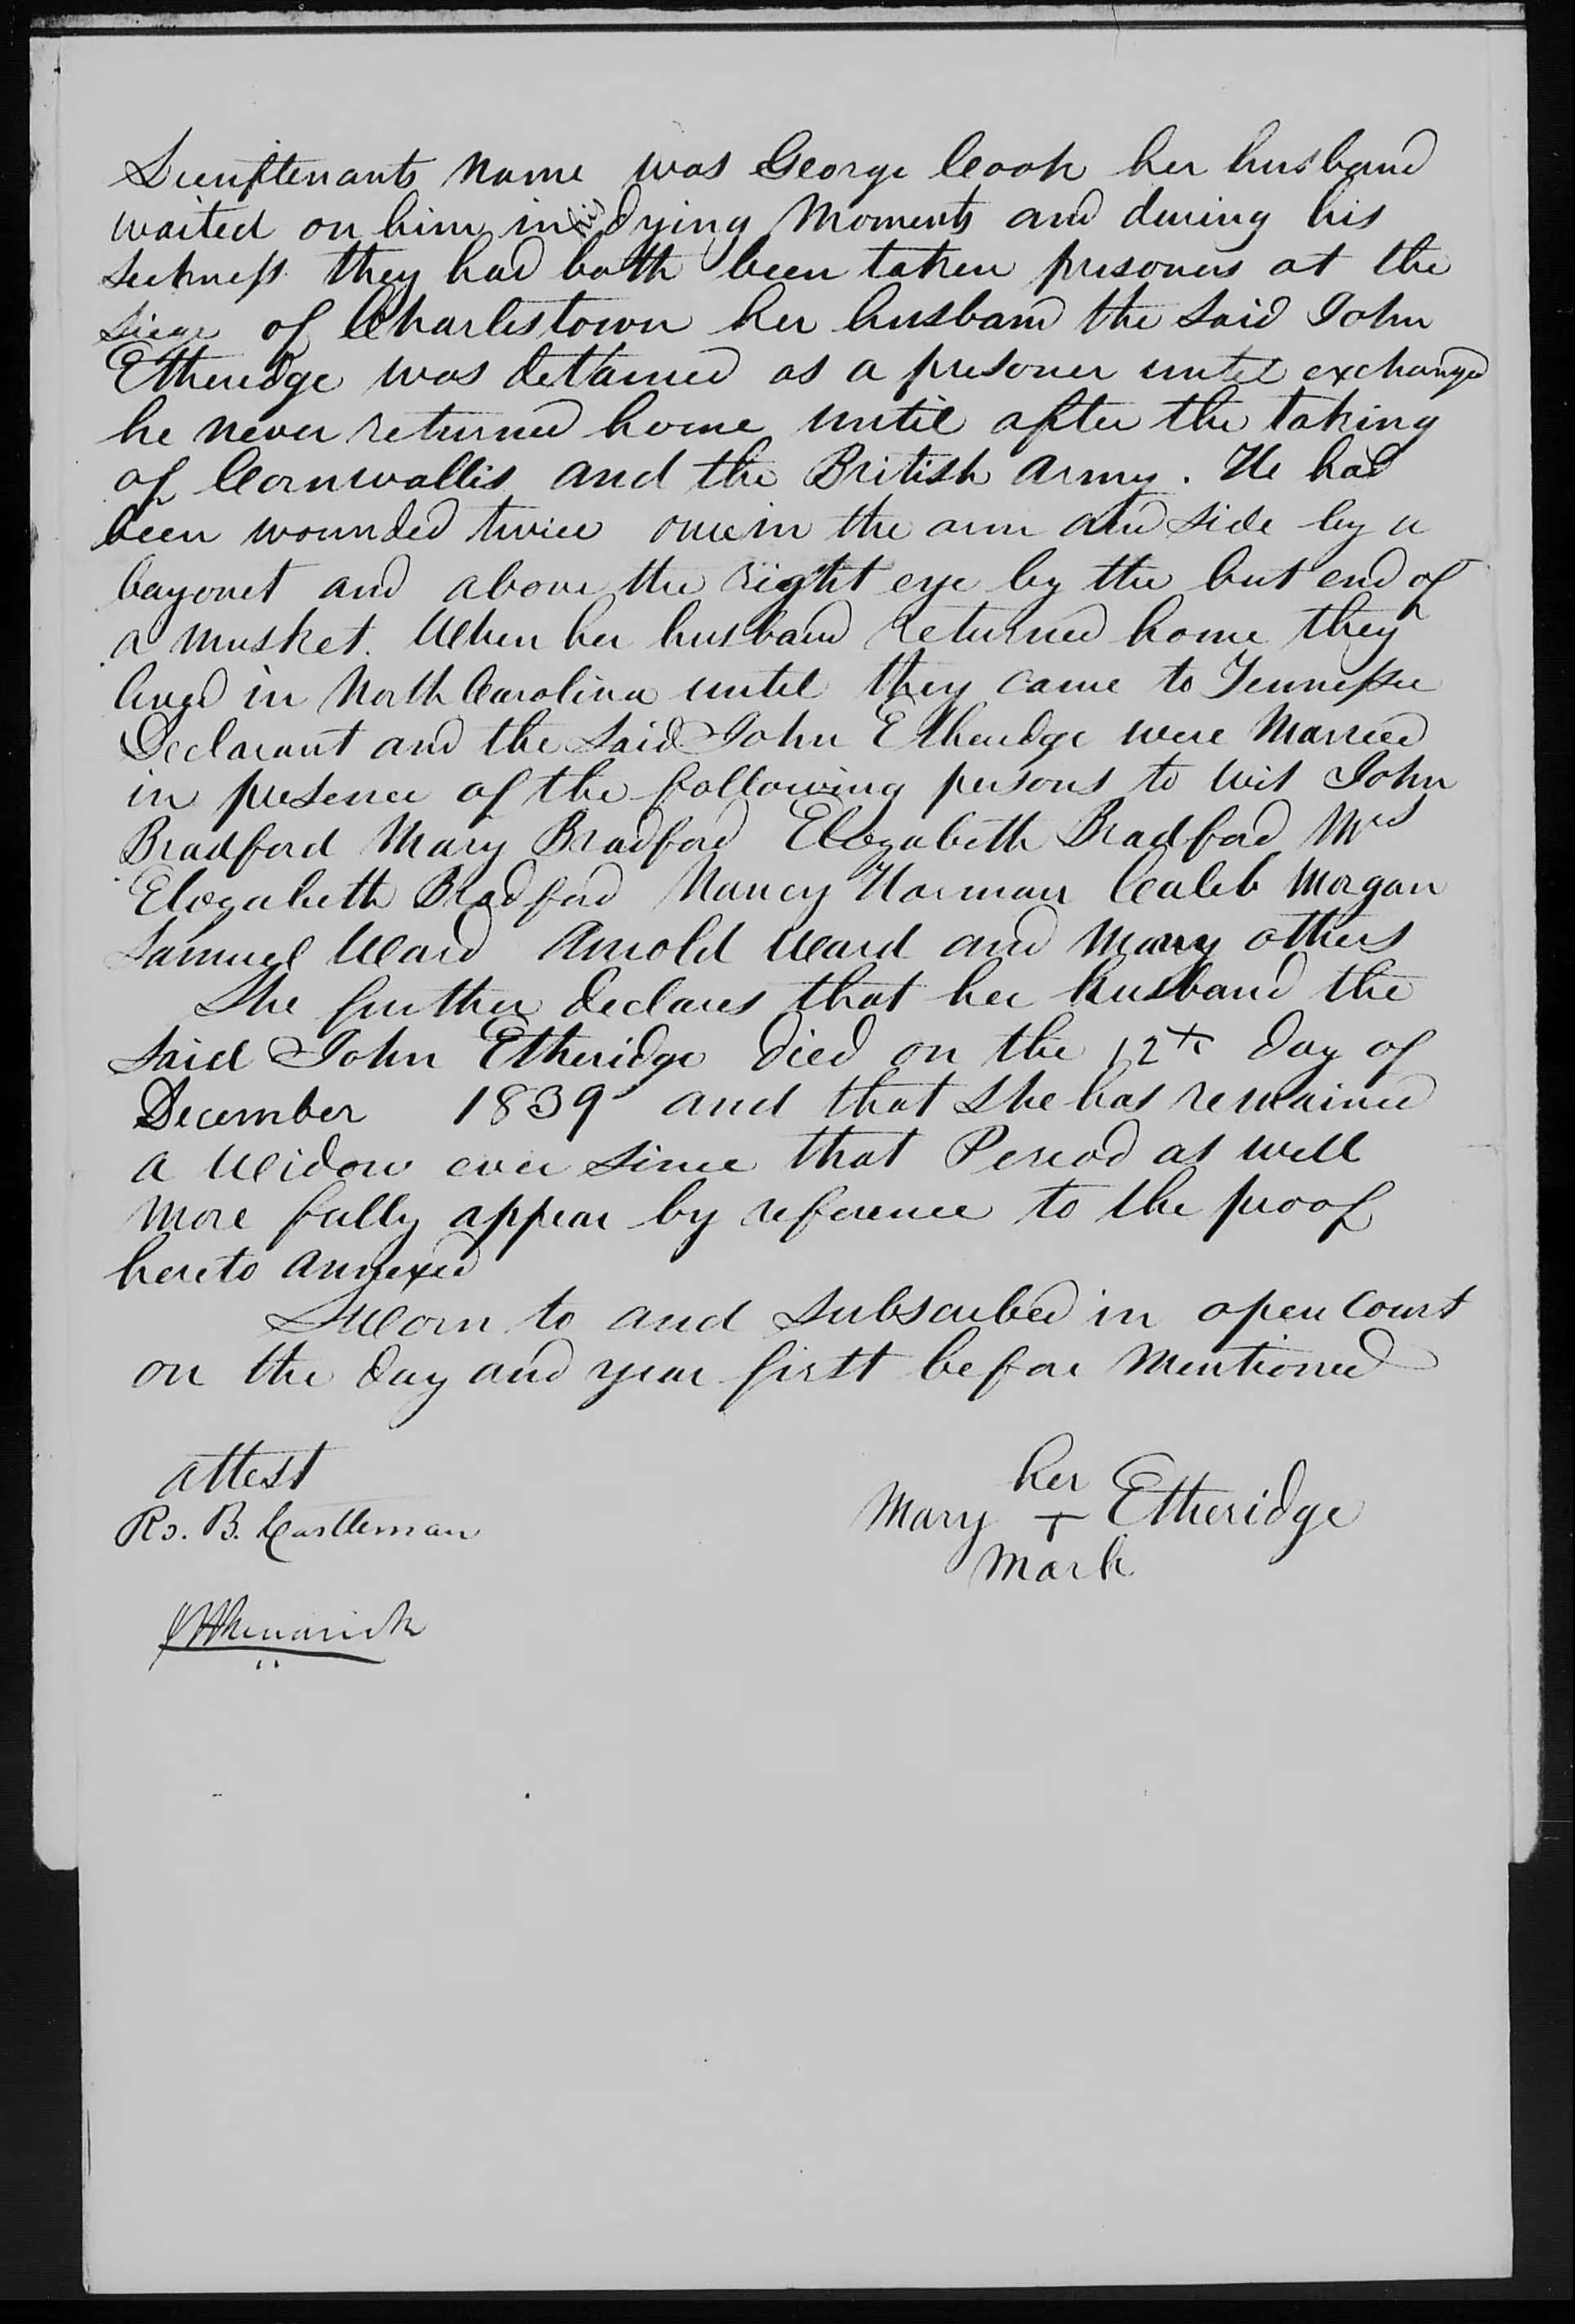 Lieuftenants Name was George Cook her husband
waited on him in his dying Moments and during his
Sickness they had both been taken prisoners at the
Siege of Charlestown her husband the Said John
Etheridge was detained as a prisoner until exchanged
he never returned home until after the taking
of Cornwallis and the British Army. He had
been wounded twice once in the arm and Side by a
bayonet and above the right eye by the but end of
a musket. When her husband returned home they
lived in North Carolina until they came to Tennessee
Declarant and the Said John Etheridge were Married
in presence of the following persons to wit John
Bradford Mary Bradford Elizabeth Bradford Mrs
Elizabeth Bradford Nancy Harman Caleb Morgan
Samuel Ward Arnold Ward and Many others
She further declares that her husband the
Said John Etheridge died on the 12th day of
December 1839 and that She has remained
a Widow ever Since that Period as will
More fully appear by reference to the proof
hereto annexed
Sworn to and Subscribed in open Court
on the day and year first before Mentioned
attest
Ro. B. Castleman
her
Mary + Etheridge
Mark